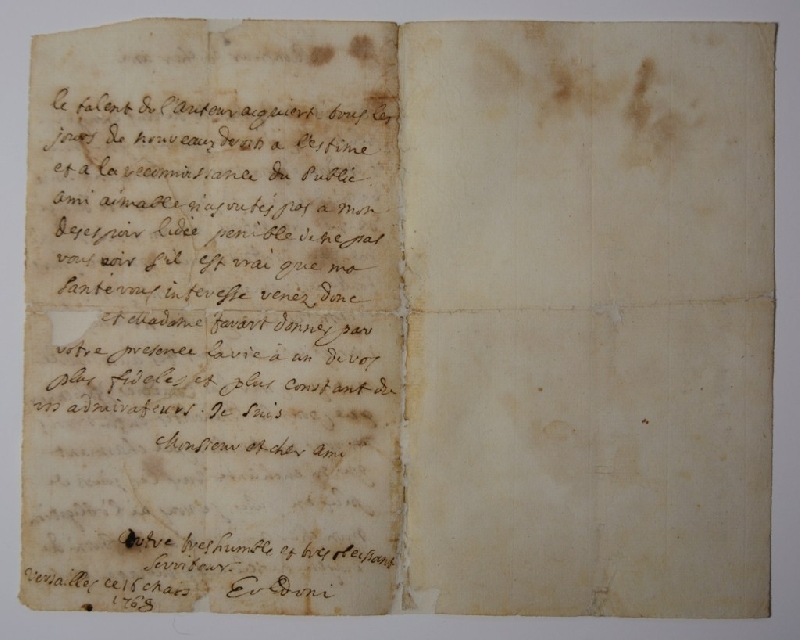 le talent de l'auteur acquiert tous les
jours de nouveaux droits a l'estime
et a la reconnoissance du Public
ami aimable n'ajoutés pas a mon
desespoir lidée penible de ne pas
vous voir s'il est vrai que ma
santé vous interesse venéz donc
et Madame favart donnés par
votre presence la vie à un de vos
plus fideles et plus constant de
vos admirateurs. Je suis
Monsieur et cher ami
Votre tres humble et tres obeissant
serviteur
Versailles ce 16 Mars
1768
Goldoni